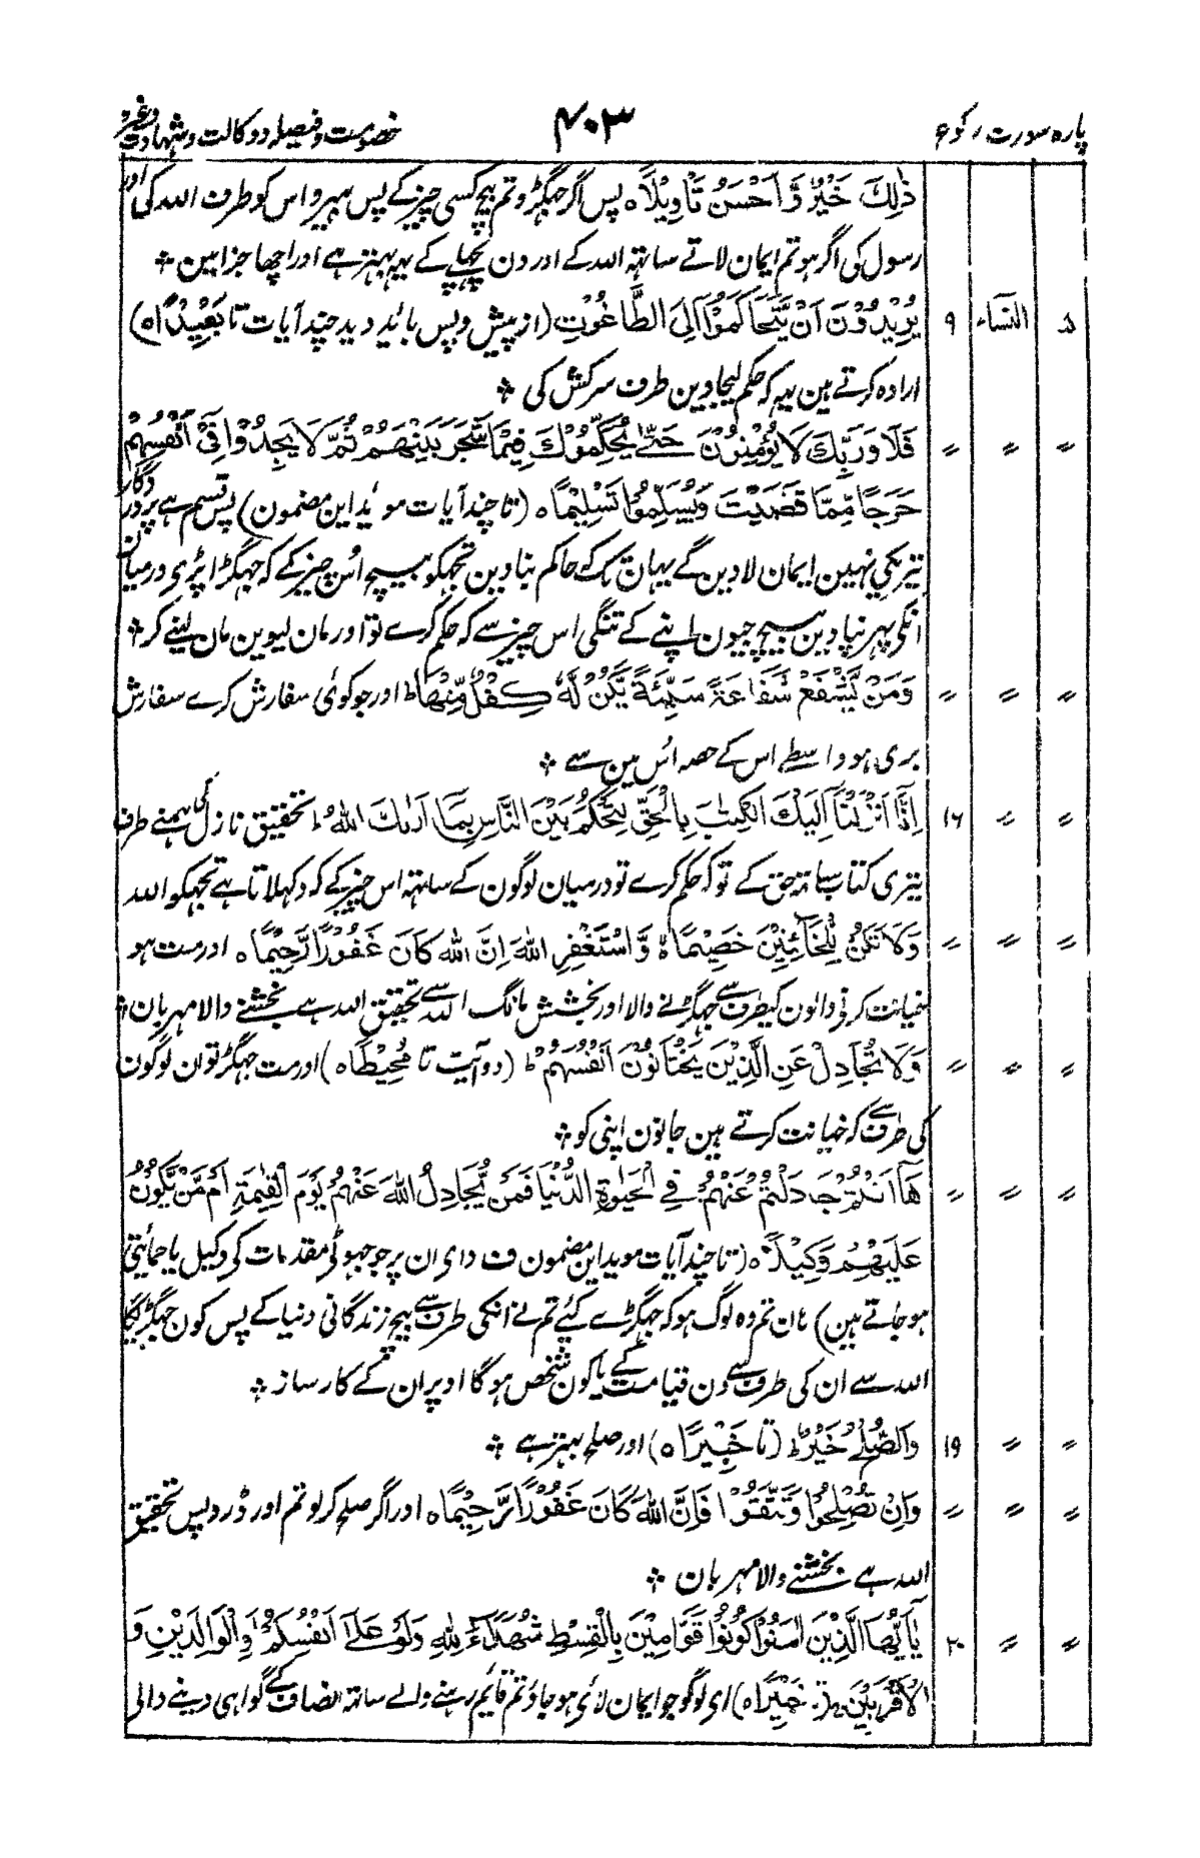 پارہ سورت رکوع ۴۰۳ خصومت و فیصلہ و وکالت و شہادت وغیرہ
ذٰلِكَ خَيْرٌ وَّاَحْسَنُ تَاْوِيْلًا ہ پس اگر جھگڑو تم بیچ کسی چیز کے پس پھیرو اس کو طرف اللہ کی اور
رسول کی اگر ہو تم ایمان لاتے ساتہہ اللہ کے اور دن پچھلے کے یہہ بہتر ہے اور اچھا جزا مین ❖
۵ النساء ۹ يُرِيْدُوْنَ اَنْ يَّتَحَاكَمُوْا اِلَى الطَّاغُوْتِ (از پیش و پس بائد دید چند آیات تا بَعِيْدًا ہ)
ارادہ کرتے ہین یہہ کہ حکم لیجاوین طرف سرکش کی ❖
〃 〃 〃 فَلَا وَرَبِّكَ لَا يُؤْمِنُوْنَ حَتّٰى يُحَكِّمُوْكَ فِيْمَا شَجَرَ بَيْنَهُمْ ثُمَّ لَا يَجِدُوْا فِىْٓ اَنْفُسِهِمْ
حَرَجًا مِّمَّا قَضَيْتَ وَيُسَلِّمُوْا تَسْلِيْمًا ہ (تا چند آیات موید این مضمون) پس قسم ہے پروردگار
تیریکی نہین ایمان لاوین گے یہان تک کہ حاکم بناوین تجہکو بیچ اُس چیز کے کہ جہگڑا پڑی درمیان
انکی پہر نپاوین بیچ جیون اپنے کے تنگی اس چیز سے کہ حکم کرے تو اور مان لیوین مان لینے کر ❖
〃 〃 〃 وَمَنْ يَّشْفَعْ شَفَاعَةً سَيِّئَةً يَّكُنْ لَّهٗ كِفْلٌ مِّنْهَا ط اور جو کوئی سفارش کرے سفارش
بری ہو واسطے اس کے حصہ اُس مین سے ❖
〃 〃 ۱۶ اِنَّآ اَنْزَلْنَآ اِلَيْكَ الْكِتٰبَ بِالْحَقِّ لِتَحْكُمَ بَيْنَ النَّاسِ بِمَآ اَرٰىكَ اللّٰهُ ط تحقیق نازل کی ہمنے طرف
تیری کتاب ساتہہ حق کے تو کہ حکم کرے تو درمیان لوگون کے ساتہہ اس چیز کے کہ دکہلاتا ہے تجہکو اللہ
〃 〃 〃 وَلَا تَكُنْ لِّلْخَآئِنِيْنَ خَصِيْمًا ہ وَّاسْتَغْفِرِ اللّٰهَ اِنَّ اللّٰهَ كَانَ غَفُوْرًا رَّحِيْمًا ہ اور مت ہو
خیانت کرنی والون کیطرف سے جہگڑنے والا اور بخشش مانگ اللہ سے تحقیق اللہ ہے بخشنے والا مہربان ❖
〃 〃 〃 وَلَا تُجَادِلْ عَنِ الَّذِيْنَ يَخْتَانُوْنَ اَنْفُسَهُمْ ط (دو آیت تا مُحِيْطًا ہ) اور مت جہگڑ تو ان لوگون
کی طرف سے کہ خیانت کرتے ہین جانون اپنی کو ❖
〃 〃 〃 هٰٓاَنْتُمْ جَادَلْتُمْ عَنْهُمْ فِى الْحَيٰوةِ الدُّنْيَا فَمَنْ يُّجَادِلُ اللّٰهَ عَنْهُمْ يَوْمَ الْقِيٰمَةِ اَمْ مَّنْ يَّكُوْنُ
عَلَيْهِمْ وَكِيْلًا ہ (تا چند آیات موید این مضمون ف وای ان پر جو جہوٹی مقدمات کی وکیل یا حمائتی
ہو جاتے ہین) ہان تم وہ لوگ ہو کہ جہگڑے کئے تم نے انکی طرف سے بیچ زندگانی دنیا کے پس کون جہگڑیگا
اللہ سے ان کی طرف سے دن قیامت کے یا کون شخص ہو گا اوپر ان کے کارساز ❖
〃 〃 ۱۹ وَالصُّلْحُ خَيْرٌ ط (تا خَبِيْرًا ہ) اور صلح بہتر ہے ❖
〃 〃 〃 وَاِنْ تُصْلِحُوْا وَتَتَّقُوْا فَاِنَّ اللّٰهَ كَانَ غَفُوْرًا رَّحِيْمًا ہ اور اگر صلح کر لو تم اور ڈرو پس تحقیق
اللہ ہے بخشنے والا مہربان ❖
〃 〃 ۲۰ يٰٓاَيُّهَا الَّذِيْنَ اٰمَنُوْا كُوْنُوْا قَوّٰمِيْنَ بِالْقِسْطِ شُهَدَآءَ لِلّٰهِ وَلَوْ عَلٰٓى اَنْفُسِكُمْ اَوِ الْوَالِدَيْنِ وَ
الْاَقْرَبِيْنَ (تا خَبِيْرًا ہ) ای لوگو جو ایمان لائی ہو جاؤ تم قایم رہنے والے ساتہہ انصاف کے گواہی دینے والی